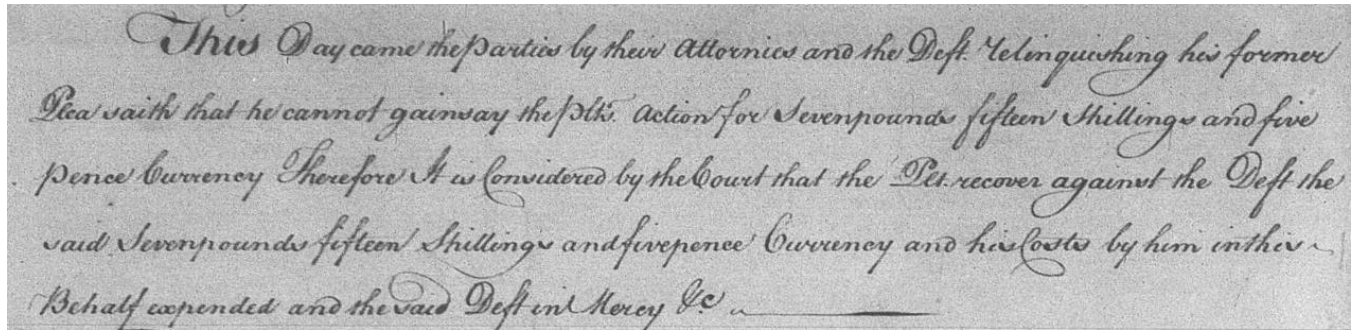 This Day came the Parties by their Attornies and the Deft. relinquishing his former
Plea saith that he cannot gainsay the Plts. Action for Sevenpounds fifteen Shillings and five
pence Currency Therefore It is Considered by the Court that the Plt. recover against the Deft the
said Sevenpounds fifteen Shillings and fivepence Currency and his Costs by him in this
Behalf expended and the said Deft in Mercy &c